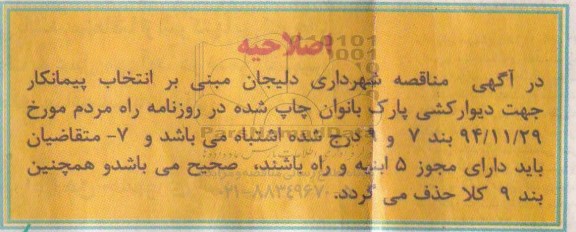 اصلاحیه
در آگهی مناقصه شهرداری دلیجان مبنی بر انتخاب پیمانکار
جهت دیوارکشی پارک بانوان چاپ شده در روزنامه راه مردم مورخ
۹۴/۱۱/۲۹ بند ۷ و ۹ درج شده اشتباه می باشد و ۷- متقاضیان
باید دارای مجوز ۵ ابنیه و راه باشند، صحیح می باشدو همچنین
بند ۹ کلا حذف می گردد.
۰۲۱-۸۸۳۴۹۶۷۰